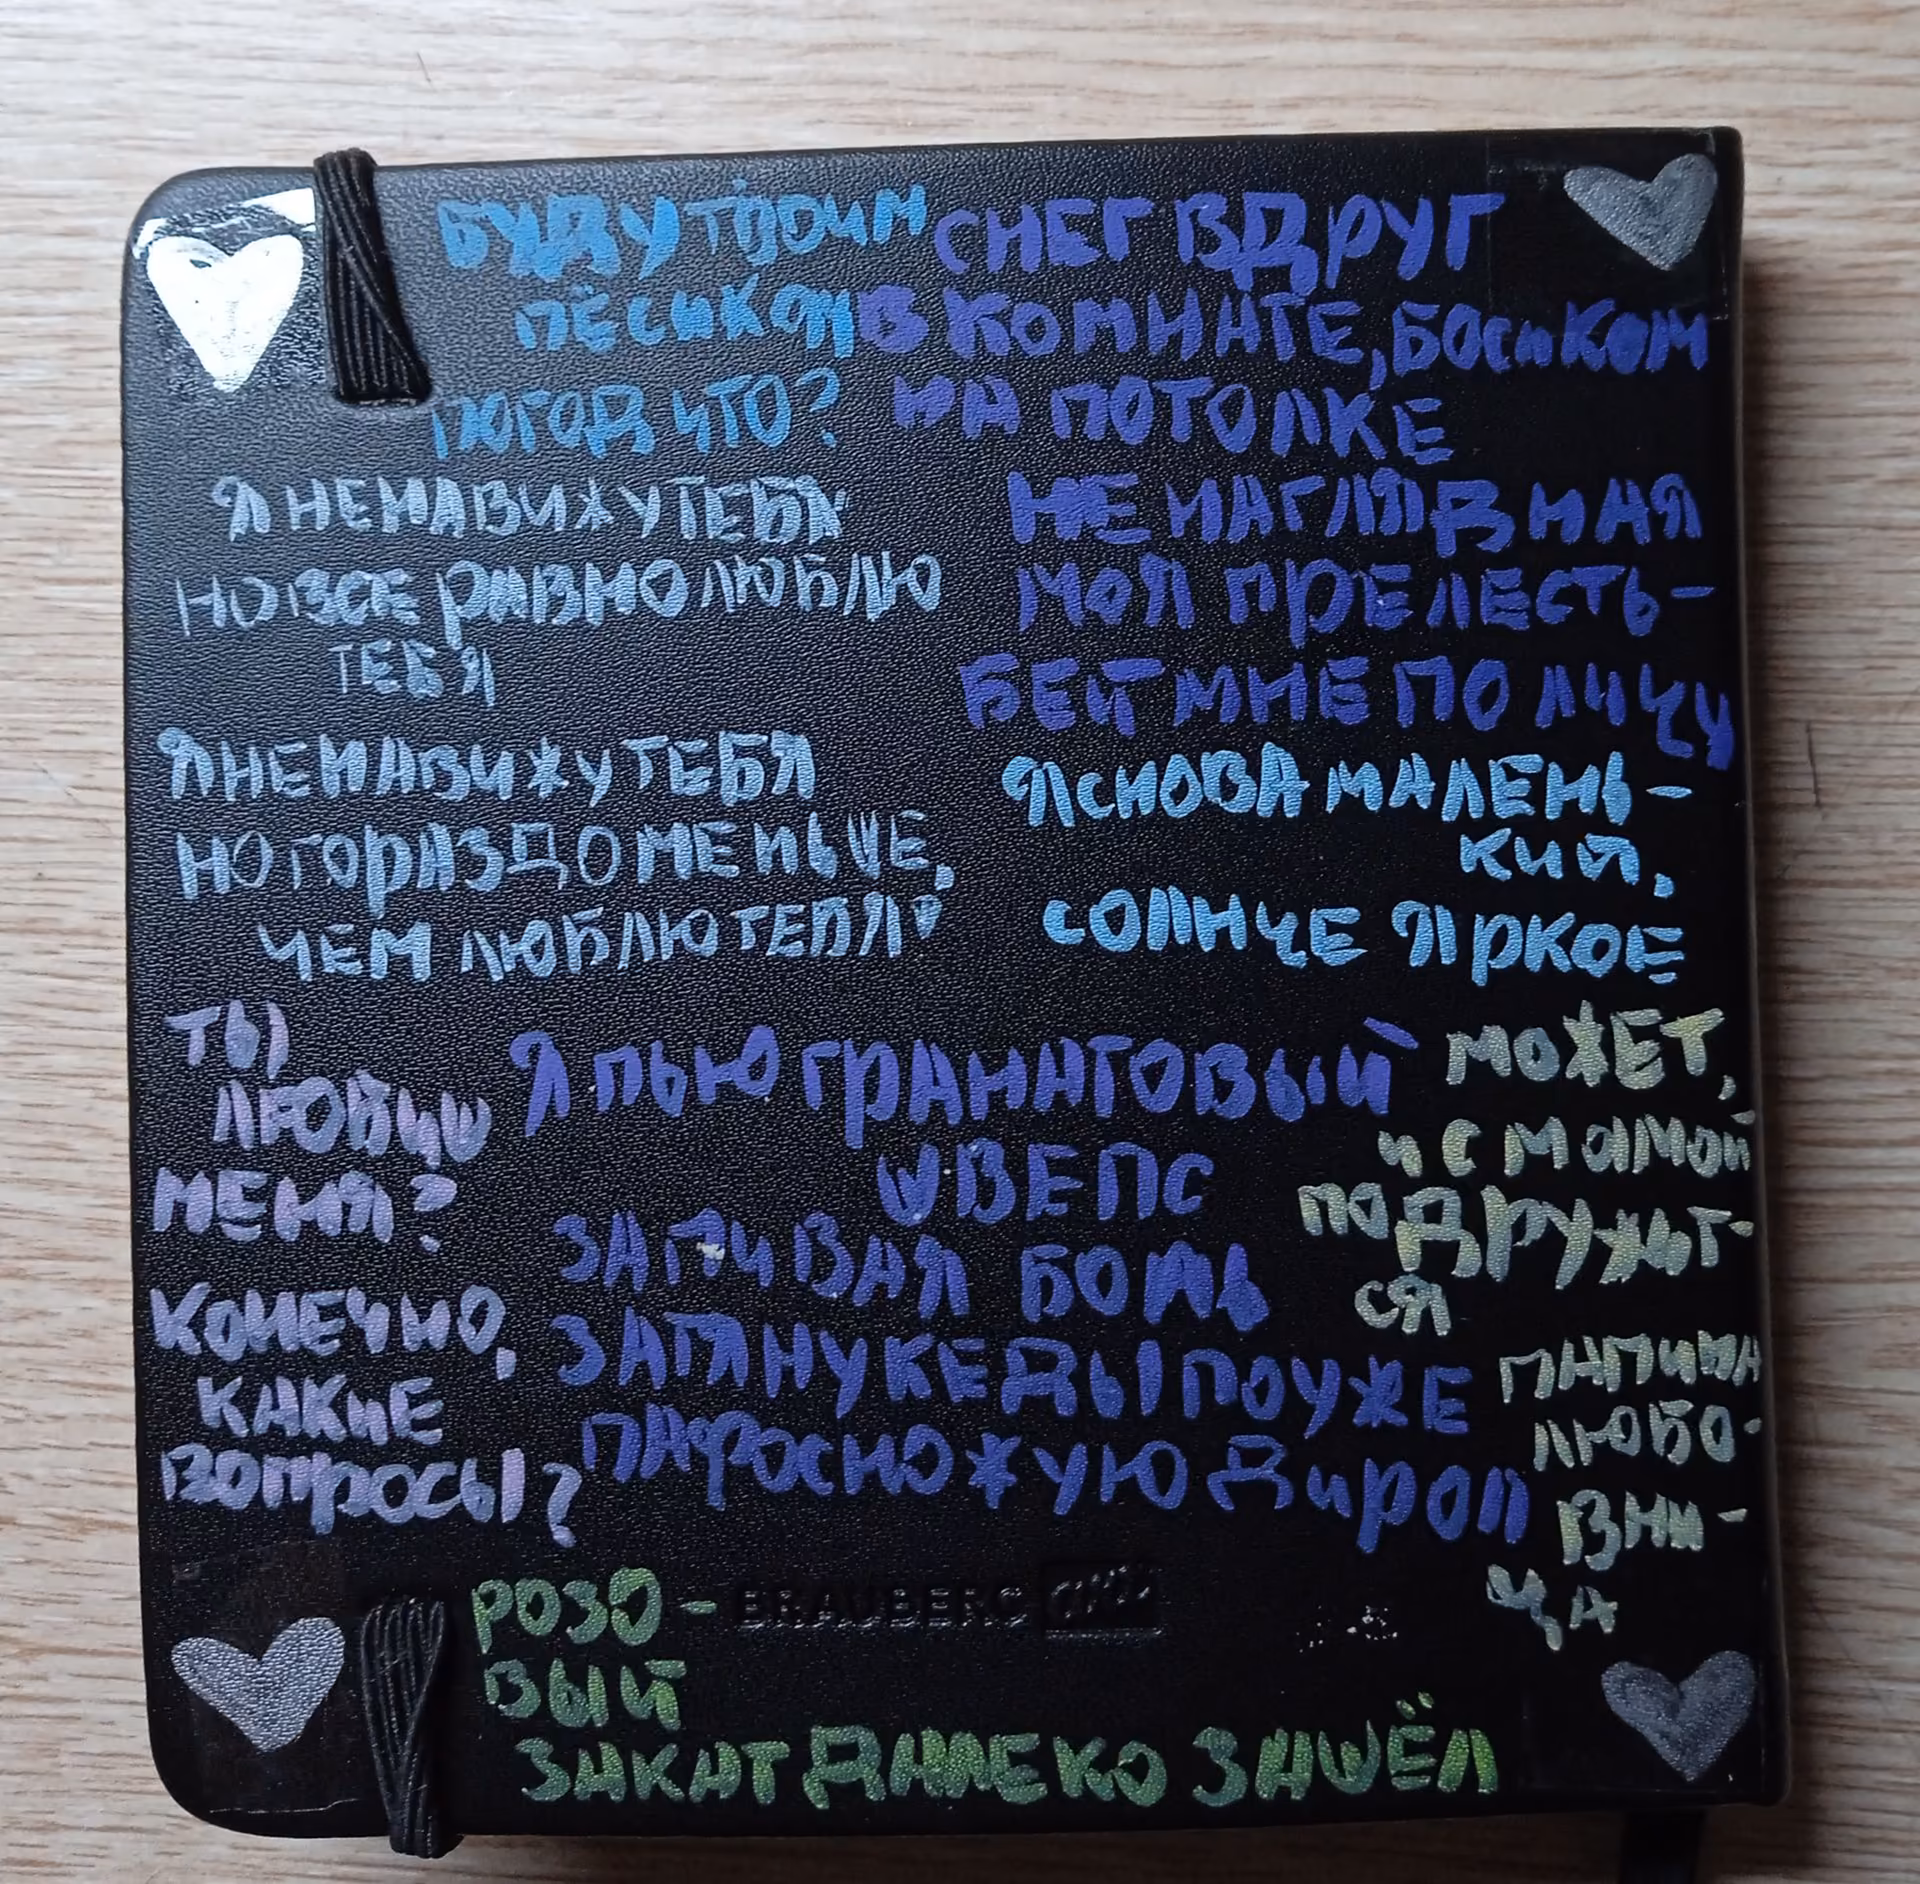 БУДУ ТВОИМ
ПЁСИКОМ
ПОГОД ЧТО?
СНЕГ ВДРУГ
В КОМНАТЕ, БОСИКОМ
НА ПОТОЛКЕ
Я НЕНАВИЖУ ТЕБЯ
НО ВСЕ РАВНО ЛЮБЛЮ
ТЕБЯ
Я НЕНАВИЖУ ТЕБЯ
НО ГОРАЗДО МЕНЬШЕ,
ЧЕМ ЛЮБЛЮ ТЕБЯ
НЕНАГЛЯДНАЯ
МОЯ ПРЕЛЕСТЬ-
БЕЙ МНЕ ПО ЛИЦУ
Я СНОВА МАЛЕНЬ-
КИЙ,
СОЛНЦЕ ЯРКОЕ
ТЫ
ЛЮБИШ
МЕНЯ?
КОНЕЧНО,
КАКИЕ
ВОПРОСЫ?
Я ПЬЮ ГРАНАТОВЫЙ
ШВЕПС
ЗАПИВАЯ БОЛЬ
ЗАТЯНУ КЕДЫ ПОУЖЕ
ПАФОСНО ЖУЮ ДИРОЛ
МОЖЕТ,
И С МАМОЙ
ПОДРУЖЬТ-
СЯ
ПАПИНА
ЛЮБО-
ВНИ-
ЦА
РОЗО-
ВЫЙ
ЗАКАТ ДАЛЕКО ЗАШЁЛ
BRAUBERG